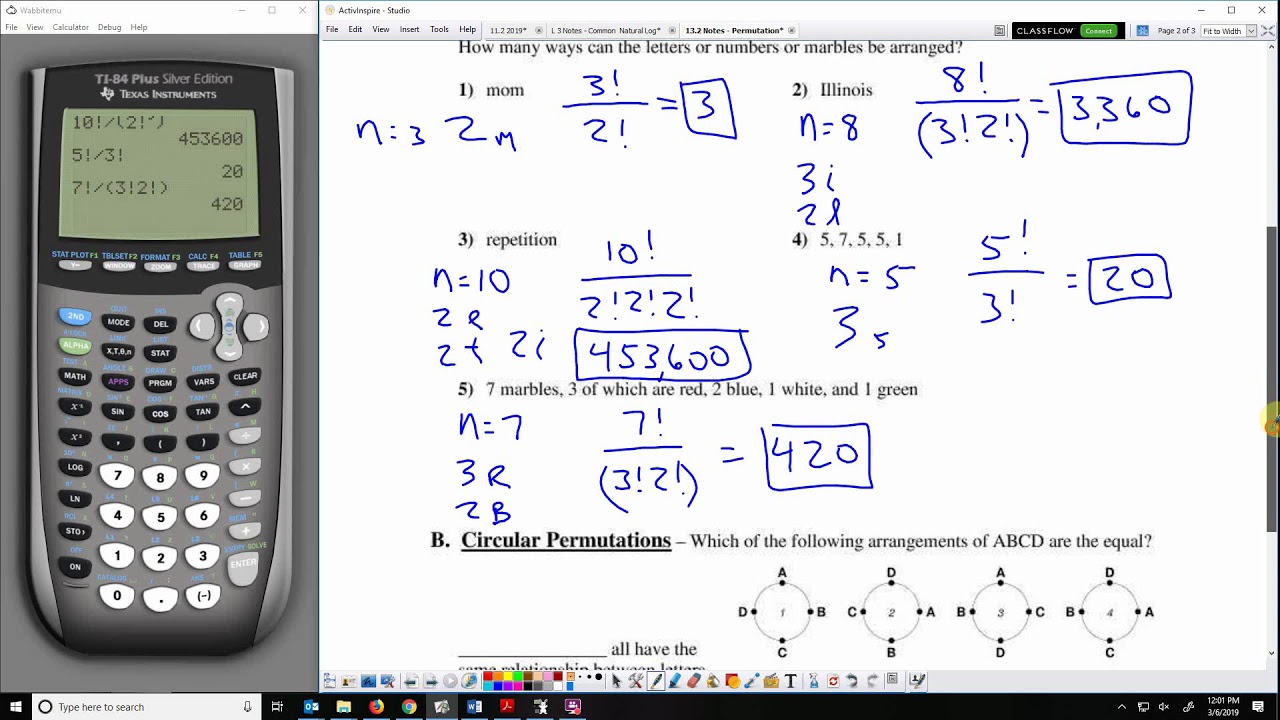 Wabbitemu
File View Calculator Debug Help
TI-84 Plus Silver Edition
TEXAS INSTRUMENTS
453600
5!/3!
20
7!/(3!2!)
420
STAT PLOT F1 TBLSET F2 FORMAT F3 CALC F4 TABLE F5
Y= WINDOW ZOOM TRACE GRAPH
2ND MODE DEL
ALPHA X,T,θ,n STAT
MATH APPS PRGM VARS CLEAR
SIN COS TAN ^
, ( ) ÷
LOG 7 8 9 ×
LN 4 5 6 −
STO› 1 2 3 +
ON 0 . (−) ENTER
ActivInspire - Studio
File Edit View Insert Tools Help
11.2 2019* 13.2 Notes - Permutation*
CLASSFLOW Connect Page 2 of 3 Fit to Width
How many ways can the letters or numbers or marbles be arranged?
1) mom 3!/2! = 3
n=3 2 m
2) Illinois 8!/(3!2!) = 3,360
n=8
3 i
2 l
3) repetition 10!/2!2!2!
n=10
2 e
2 t 2 i 453,600
4) 5, 7, 5, 5, 1 5!/3! = 20
n=5
3 5
5) 7 marbles, 3 of which are red, 2 blue, 1 white, and 1 green
n=7 7!/(3!2!) = 420
3 R
2 B
B. Circular Permutations – Which of the following arrangements of ABCD are the equal?
A D A D
D 1 B C 2 A B 3 C B 4 A
C B D C
_______________ all have the
same relationship between letters
Type here to search
12:01 PM
3/6/2019